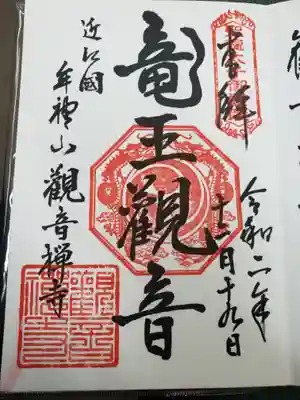 奉拝
令和二年
十二月十九日
竜王観音
近江國
牟禮山
觀音禅寺